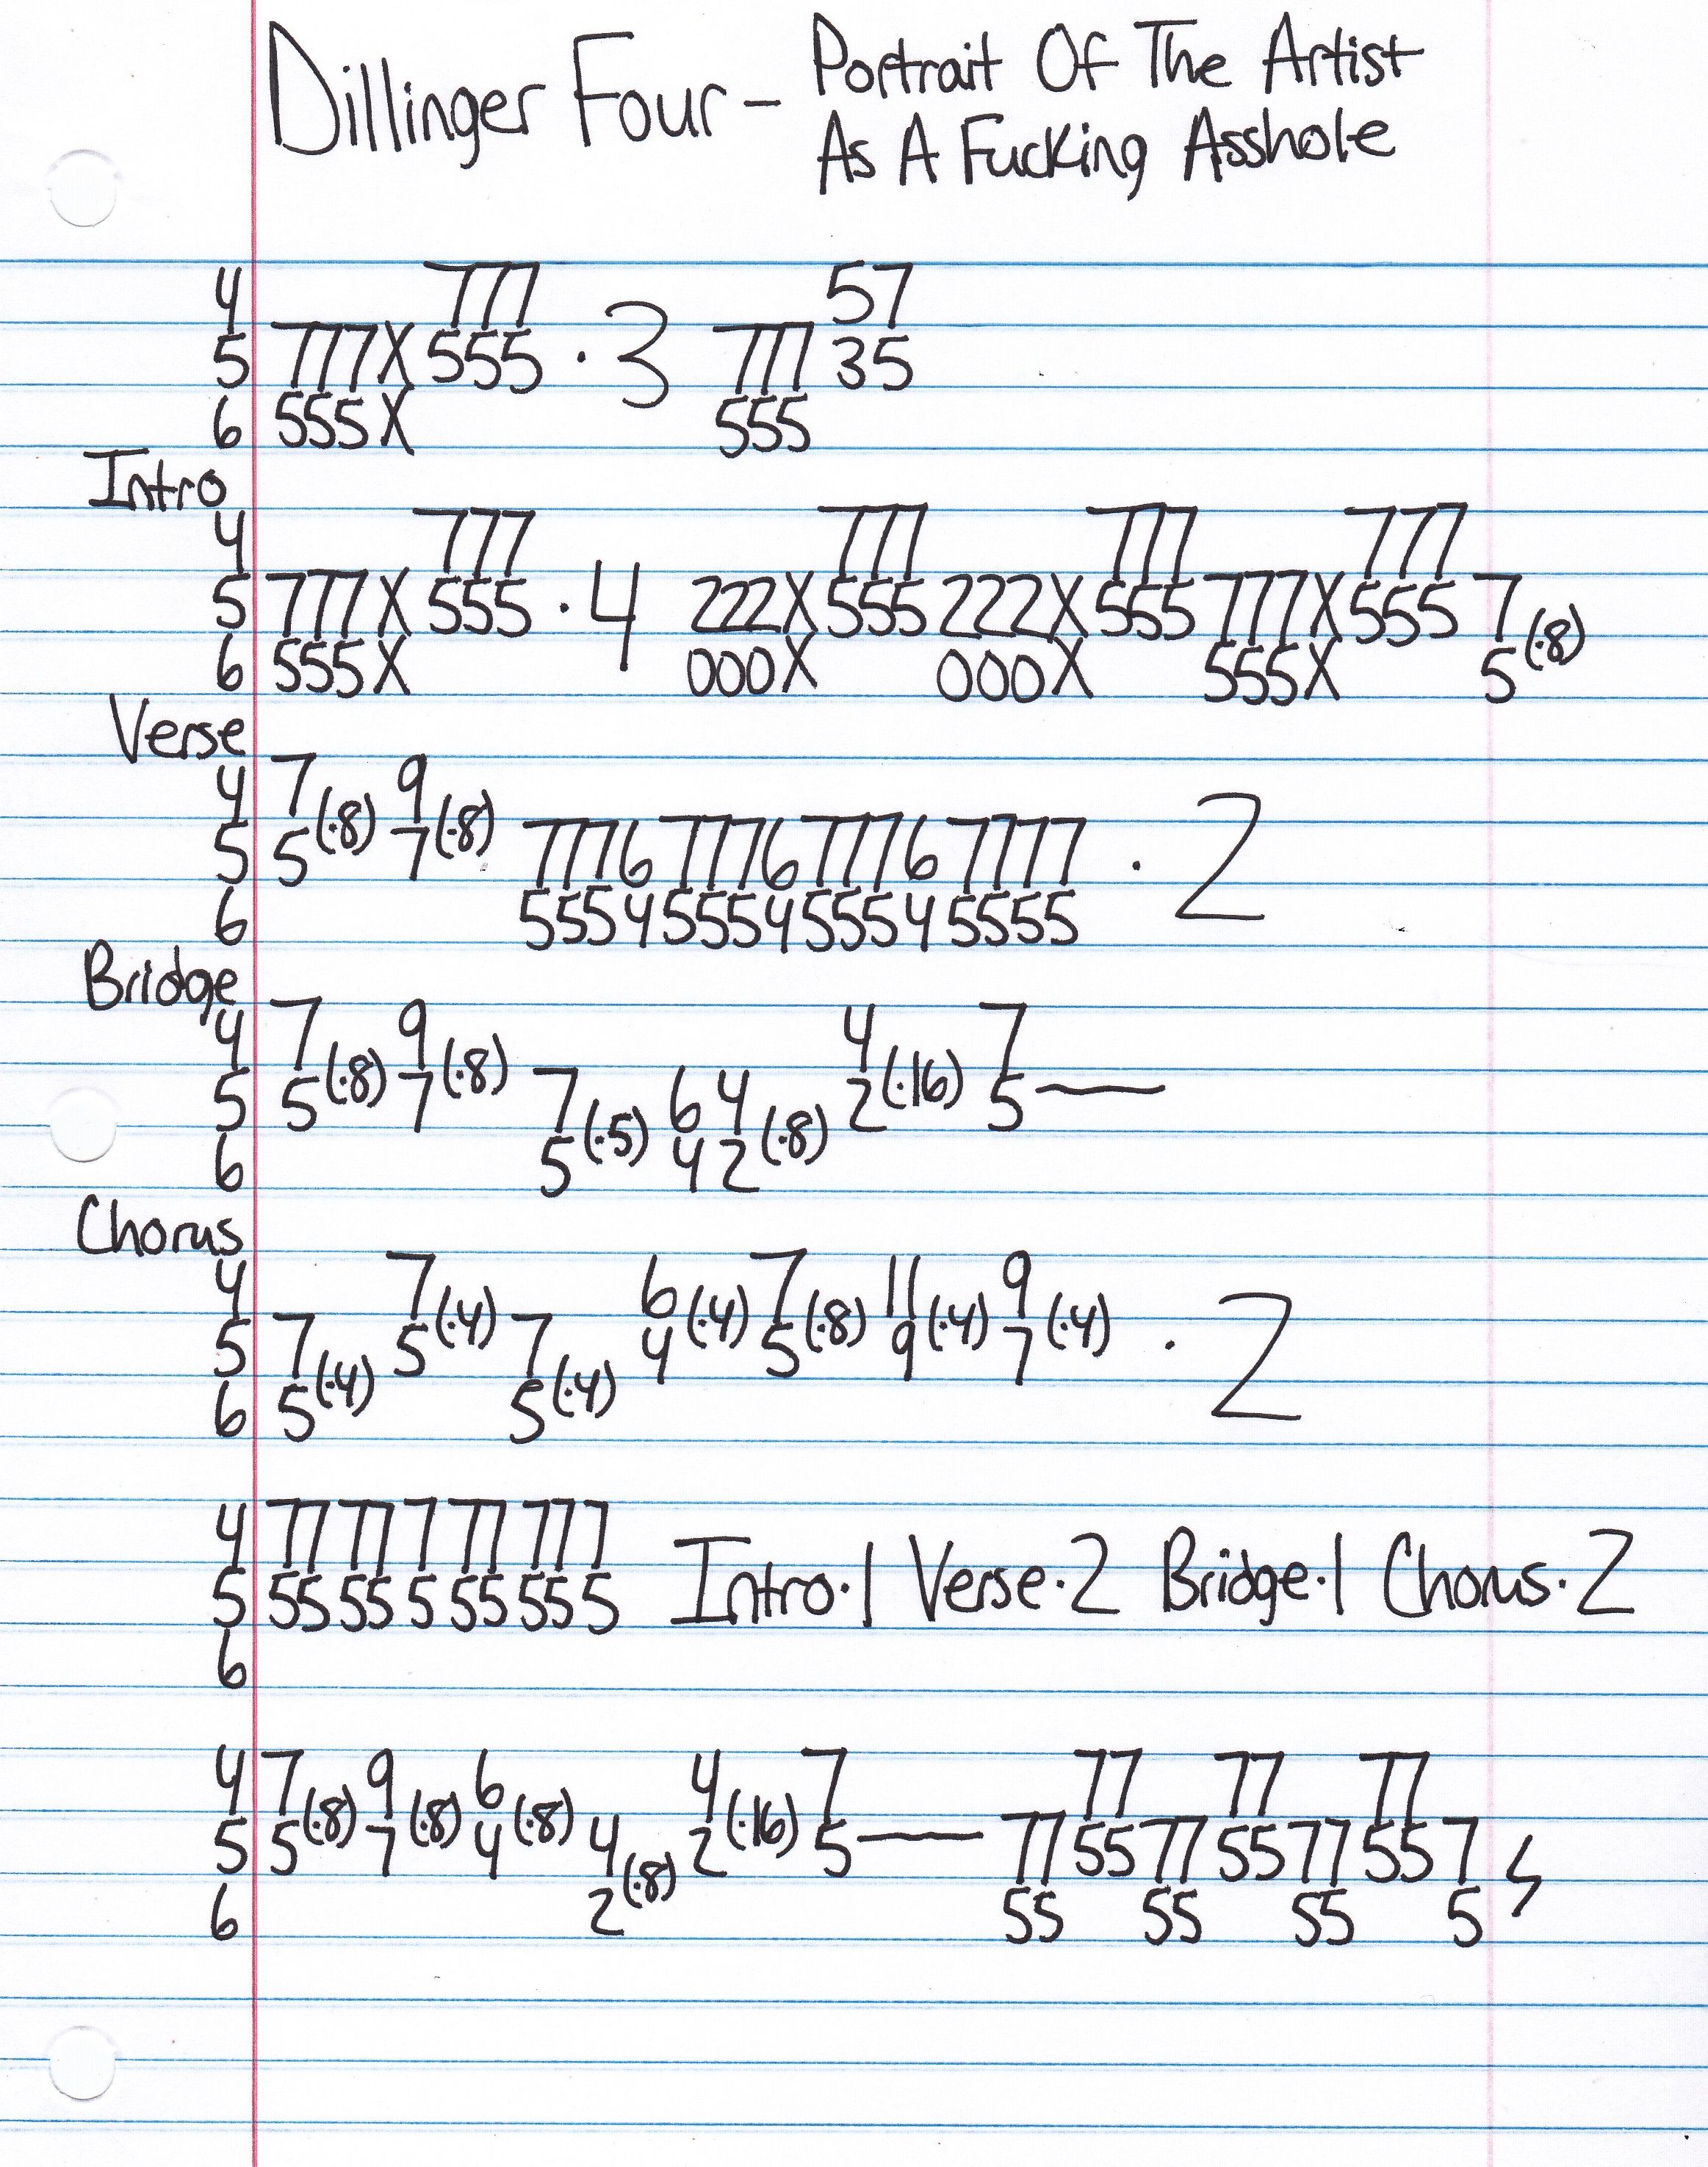 Dillinger Four - Portrait Of The Artist
As A Fucking Asshole
4 777 57
5 777X 555 · 3 777 35
6 555X 555
Intro
4 777 777 777 777
5 777X 555 · 4 222X 555 222X 555 777X 555 7
6 555X 000X 000X 555X 5 (·8)
Verse
4 7 9
5 5 (·8) 7 (·8) 7776 7776 7776 7777 · 2
6 5554 5554 5554 5555
Bridge
4 7 9 4 7
5 5 (·8) 7 (·8) 7 6 4 2 (·16) 5 —
6 5 (·5) 4 2 (·8)
Chorus
4 7 6 7 11 9
5 7 5 (·4) 7 4 (·4) 5 (·8) 9 (·4) 7 (·4) · 2
6 5 (·4) 5 (·4)
4 77 77 7 77 777
5 55 55 5 55 555 Intro·1 Verse·2 Bridge·1 Chorus·2
6
4 7 9 6 4 7 77 77 77
5 5 (·8) 7 (·8) 4 (·8) 4 2 (·16) 5 — 77 55 77 55 77 55 7
6 2 (·8) 55 55 55 5